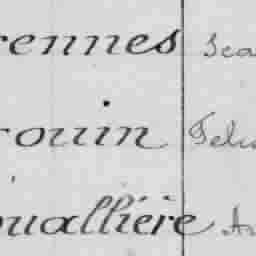 rennes Jea
rouin Felix
ouallière A